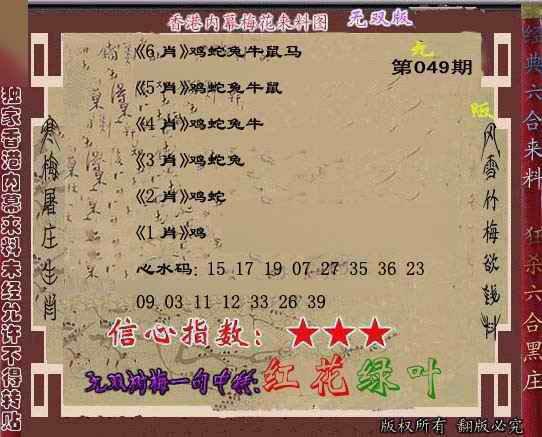 香港内幕梅花来料图 无双版
《6 肖》鸡蛇兔牛鼠马
无
第049期
《5 肖》鸡蛇兔牛鼠
版
《4 肖》鸡蛇兔牛
《3 肖》鸡蛇兔
《2 肖》鸡蛇
《1 肖》鸡
心水码: 15 17 19 07 27 35 36 23
09 03 11 12 33 26 39
信心指数: ★★★
无双浏梅一句中特:红花绿叶
版权所有 翻版必究
独家香港内幕来料未经允许不得转贴
寒梅屠庄生肖
风雪竹梅欲钱料
经典六合来料 狂杀六合黑庄